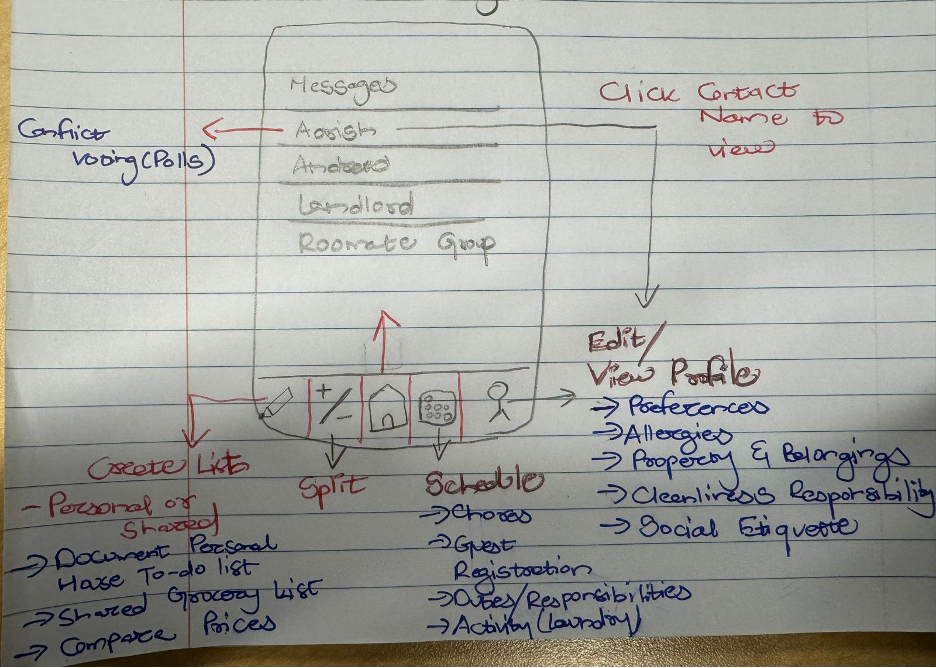 Messages
Aavish
Android
Landlord
Roomate Group
Conflict
voting (Polls)
Click Contact
Name to
view
Edit/
View Profile
→ Preferences
→ Allergies
→ Property & Belongings
→ Cleanliness Responsibility
→ Social Etiquette
+/-
Create Lists
- Personal or
Shared
→ Document Personal
House To-do list
→ Shared Grocery List
→ Compare Prices
Split
Schedule
→ Chores
→ Guest
Registration
→ Duties/Responsibilities
→ Activity (Laundry)